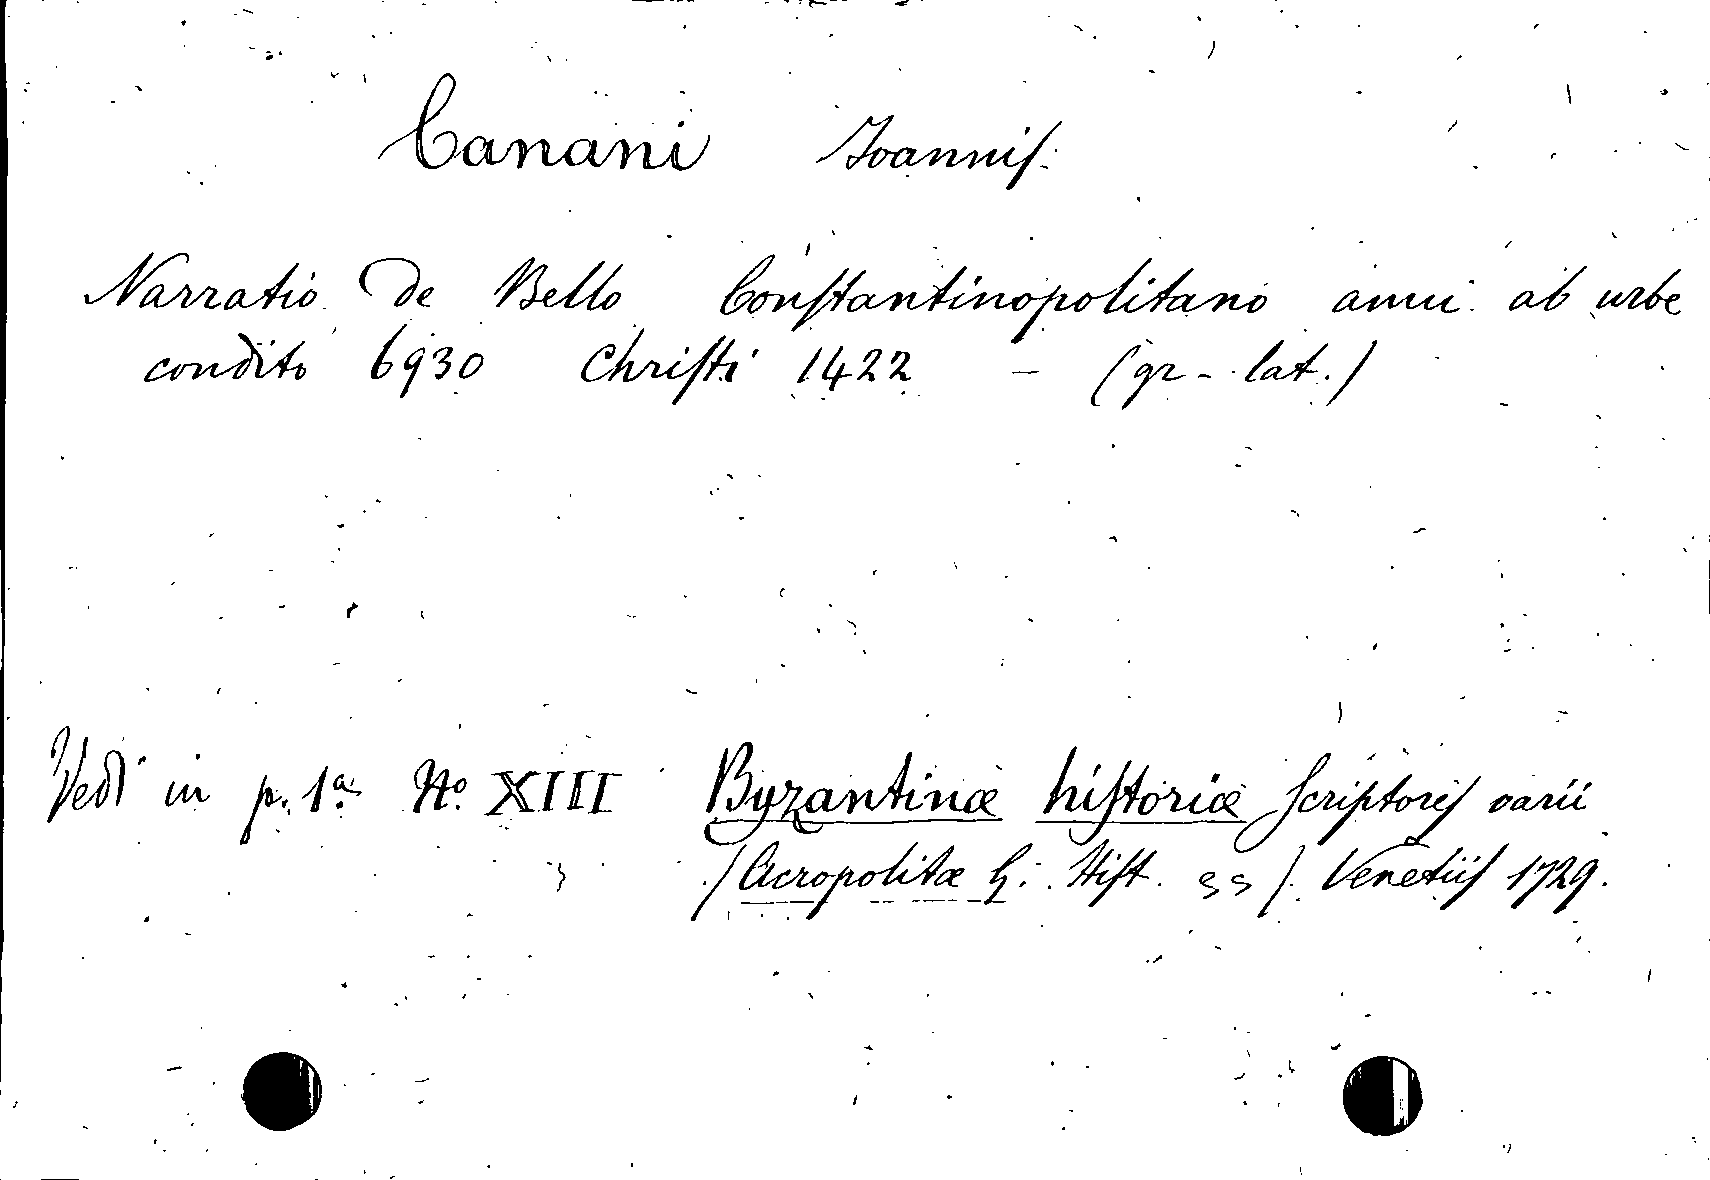 Canani Joannis.
Narratio de Bello Constantinopolitano anni ab urbe
condito 6930 Christi 1422 - (gr - lat.)
Vedi in p. 1a No. XIII Byzantinæ historiæ Scriptores varii
(Acropolitæ G: Hist. ). Venetiis 1729.